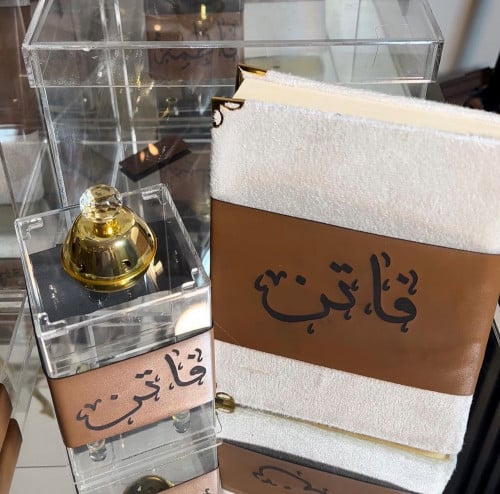 فاتن
فاتن